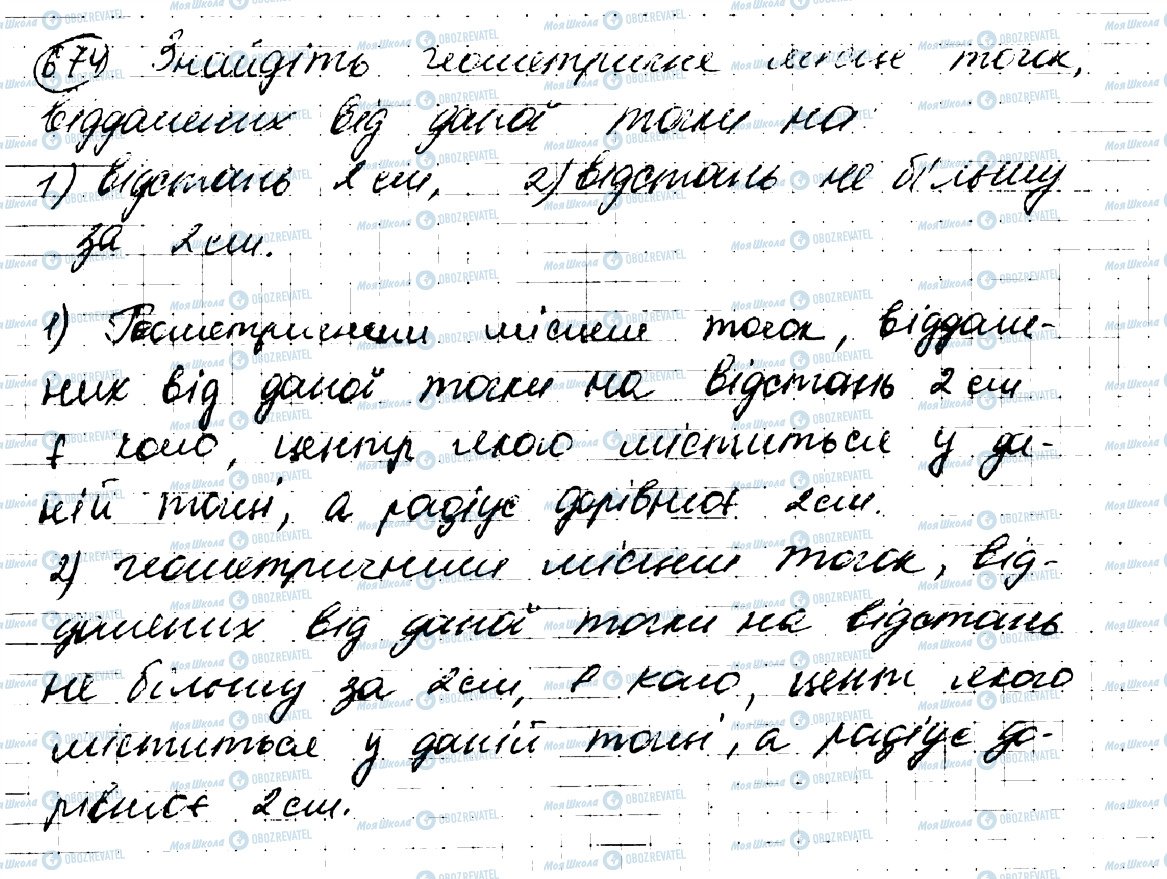 674) Знайдіть геометричне місце точок,
віддалених від даної точки на
1) відстань 2 см, 2) відстань не більшу
за 2 см.
1) Геометричним місцем точок, віддале-
них від даної точки на відстань 2 см
є коло, центр якого міститься у да-
ній точці, а радіус дорівнює 2 см.
2) геометричним місцем точок, від-
далених від даної точки на відстань
не більшу за 2 см, є коло, центр якого
міститься у даній точці, а радіус до-
рівнює 2 см.